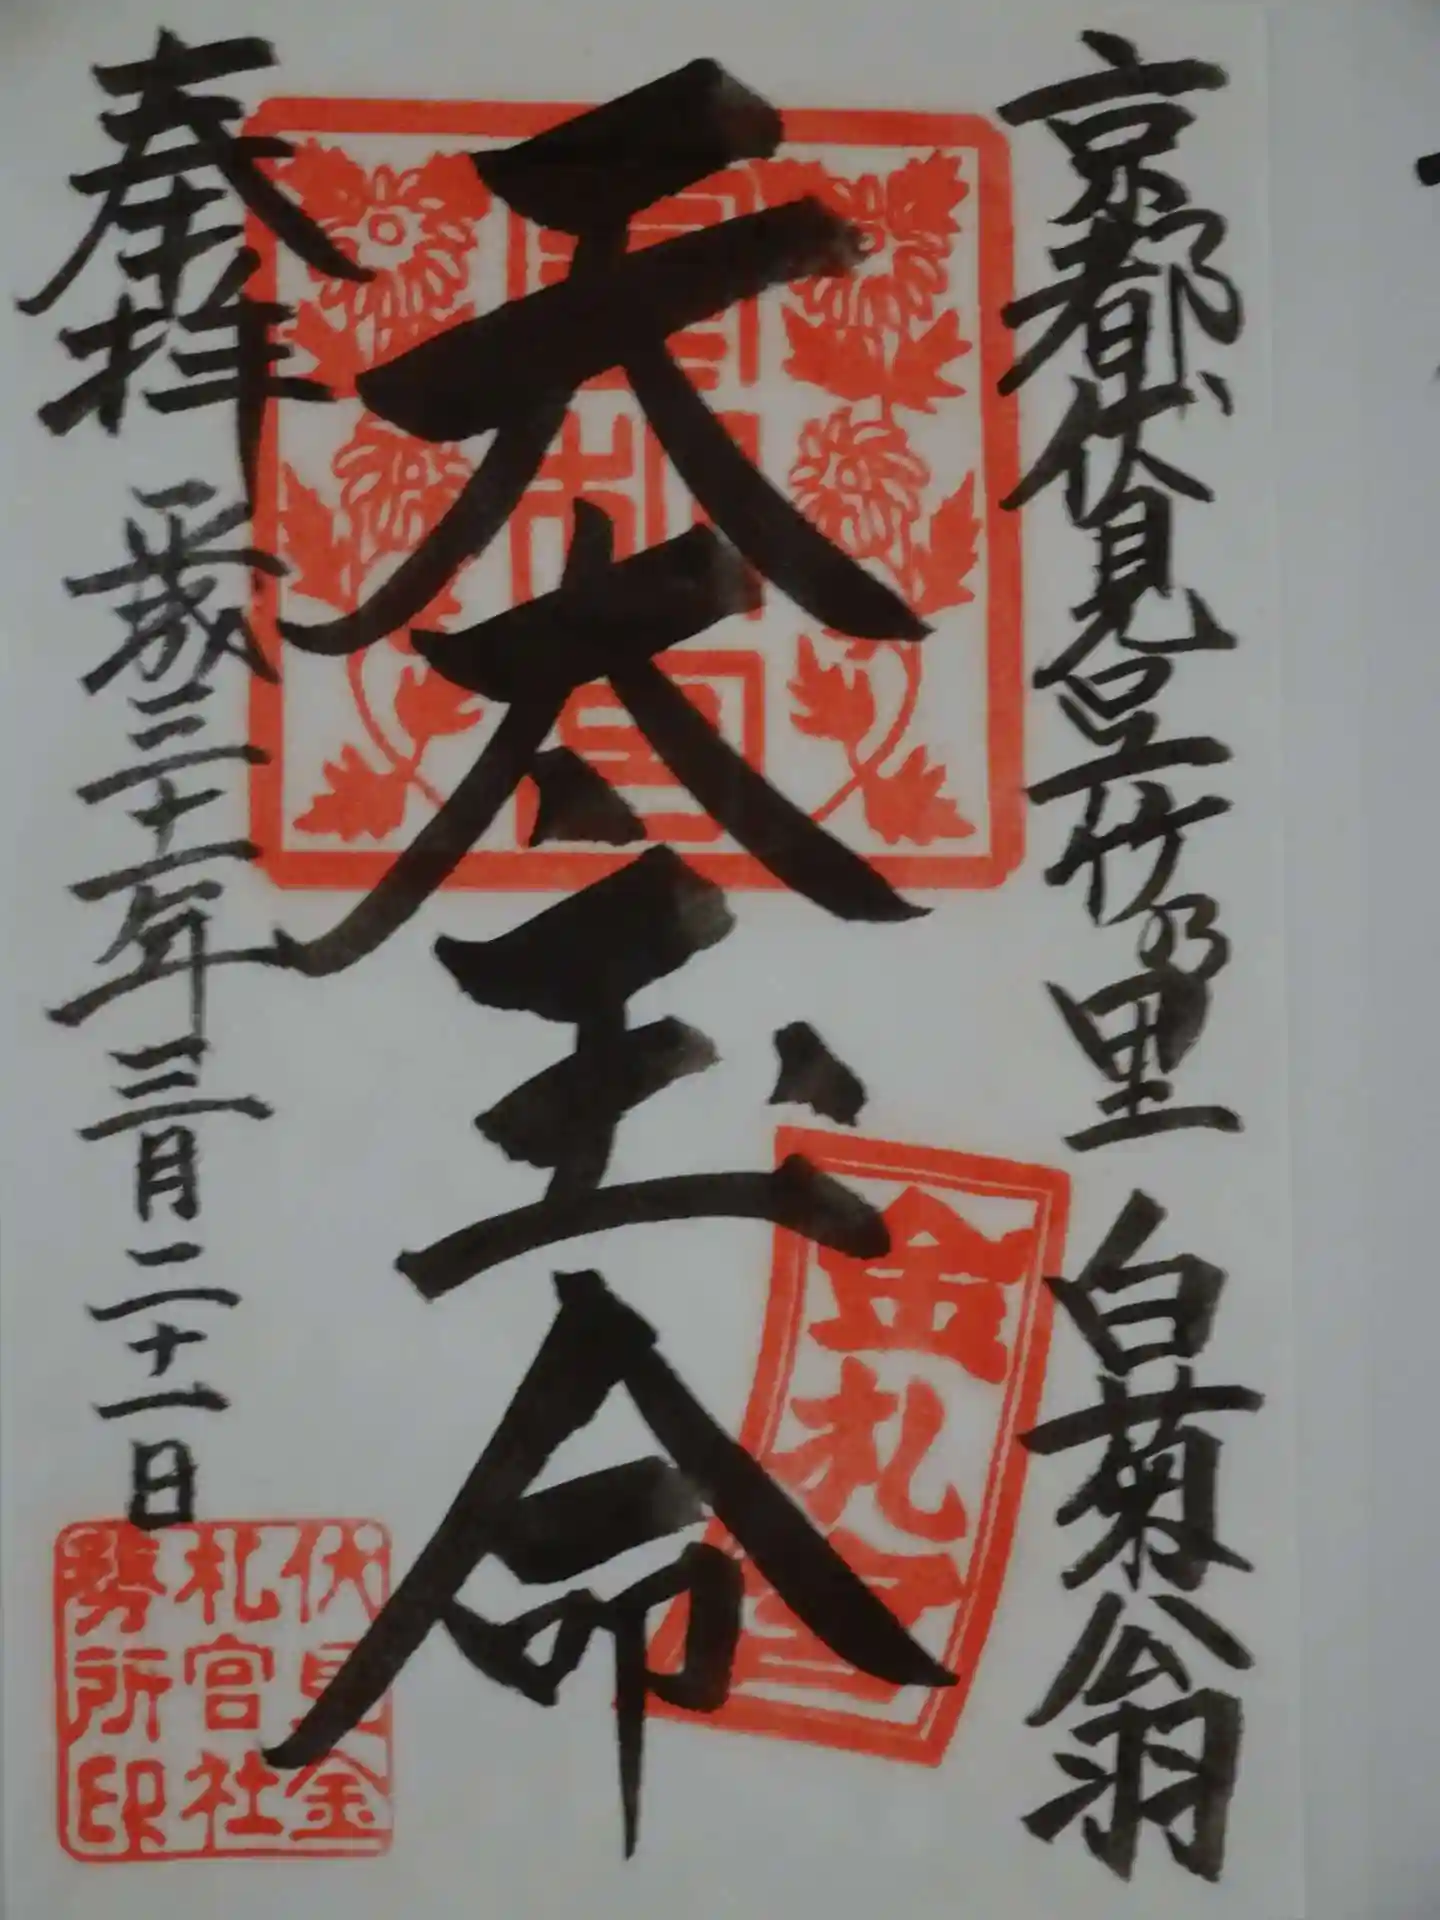 京都伏見呉竹乃里 白菊翁
天太玉命
金札宮
奉拝 平成三十一年三月二十一日
伏見金
札宮社
務所印